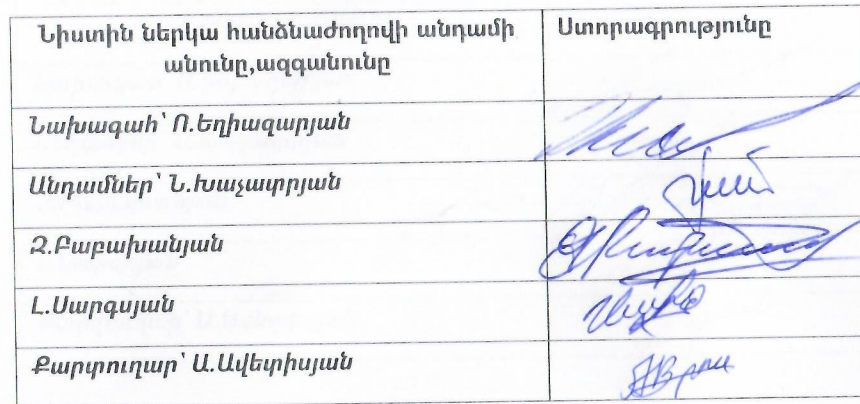 Նիստին ներկա հանձնաժողովի անդամի Ստորագրությունը
անունը,ազգանունը
Նախագահ՝ Ո.Եղիազարյան
Անդամներ՝ Ն.Խաչատրյան
Զ.Բաբախանյան
Լ.Սարգսյան
Քարտուղար՝ Ա.Ավետիսյան